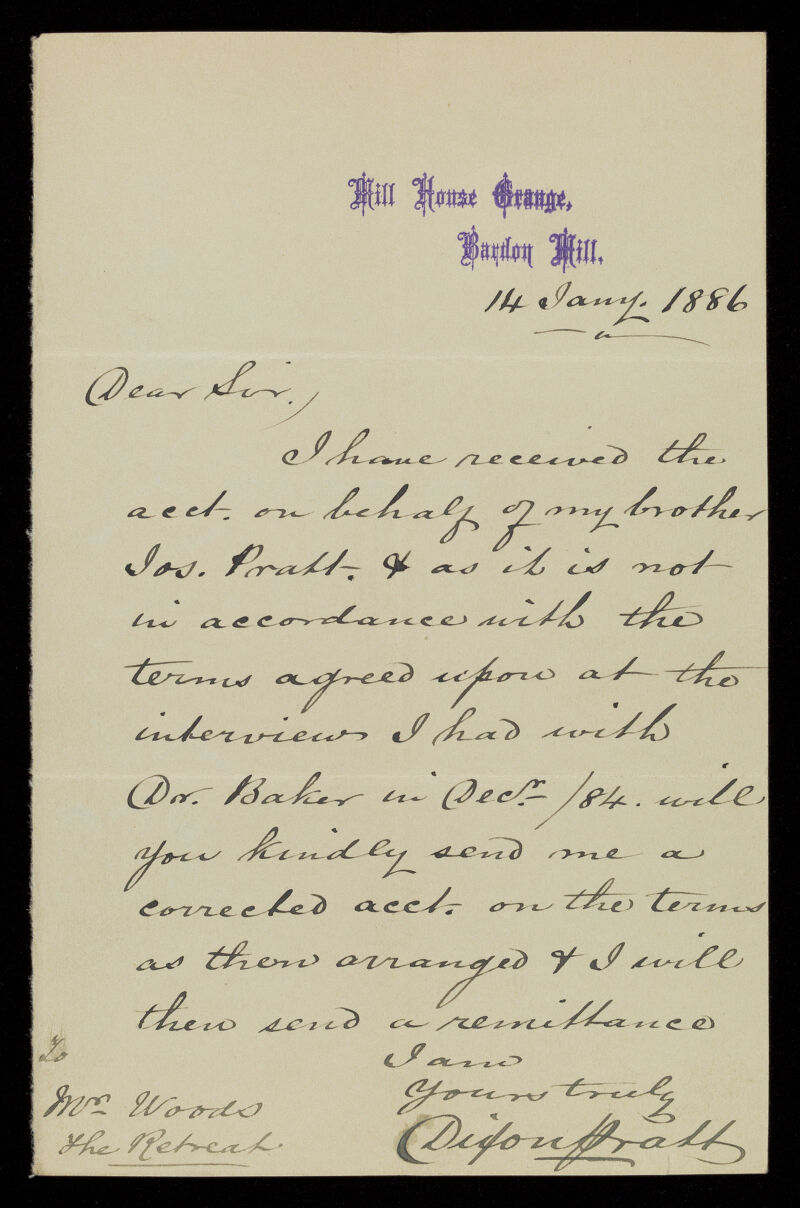 Mill House Grange,
Bardon Mill.
14 Jany. 1886
Dear Sir,
I have received the
acct. on behalf of my brother
Jos. Pratt. & as it is not
in accordance with the
terms agreed upon at the
interview I had with
Dr. Baker in Decr. /84. will
you kindly send me a
corrected acct. on the terms
as then arranged & I will
then send a remittance
I am
Yours truly
Dixon Pratt
To
Mr. Woods
The Retreat